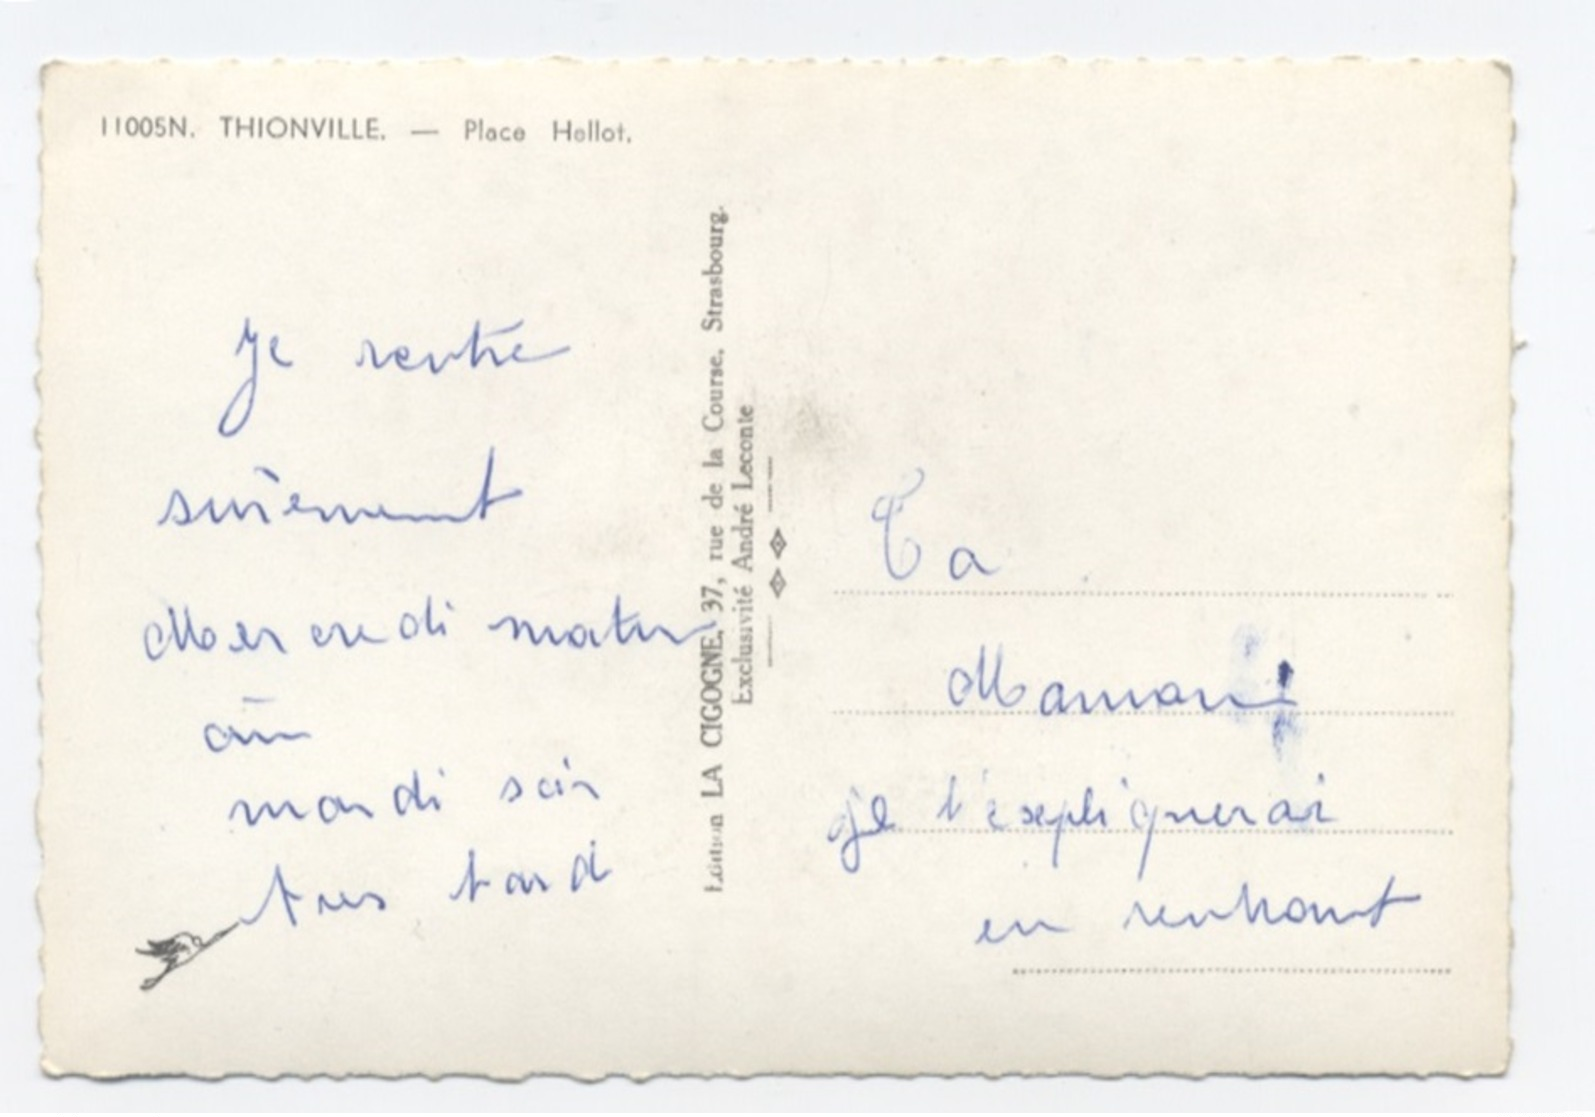 11005N. THIONVILLE. — Place Hellot.
Je rentre
sûrement
Mercredi matin
ou
mardi soir
tres tard
Edition LA CIGOGNE, 37, rue de la Course, Strasbourg.
Exclusivité André Leconte
Ta
Maman
je t'expliquerai
en rentrant